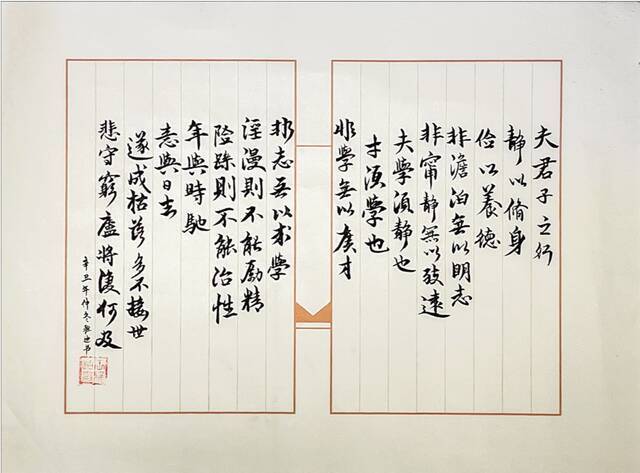 夫君子之行
静以脩身
俭以養德
非澹泊無以明志
非甯静無以致遠
夫學須静也
才須學也
非學無以廣才
非志无以求學
淫漫則不能励精
险躁則不能治性
年與時馳
意與日去
遂成枯落多不接世
悲守窮廬将復何及
辛丑年仲冬